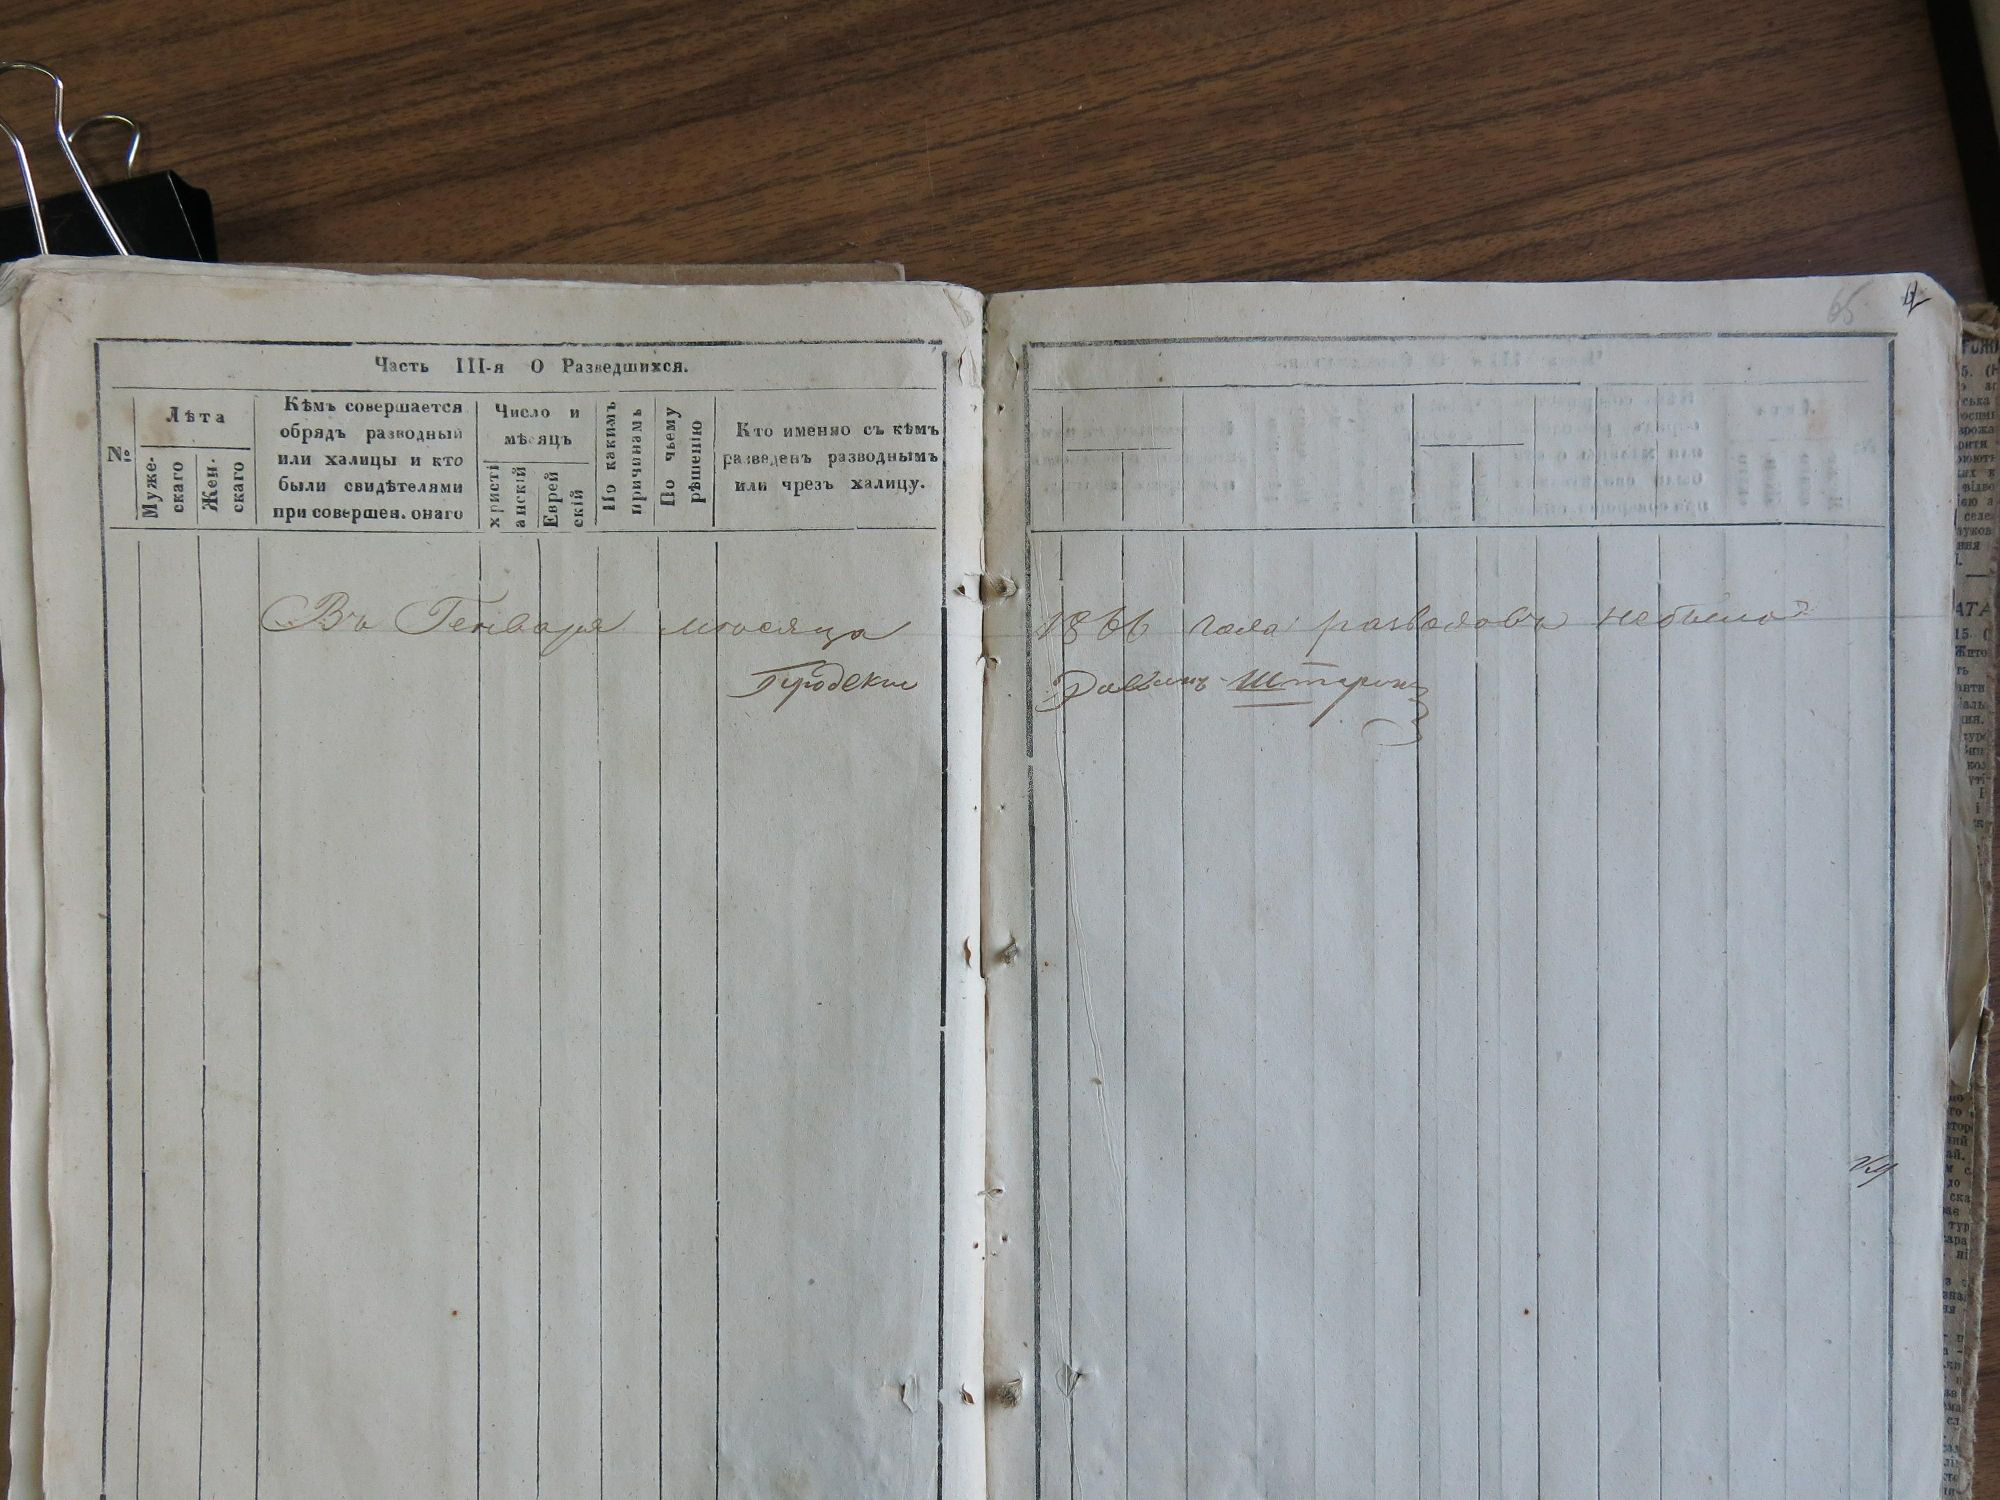 65
Часть III-я О Разведшихся.
№
Лѣта
Муже-
скаго
Жен-
скаго
Кѣмъ совершается
обрядъ разводный
или халицы и кто
были свидѣтелями
при совершен. онаго
Число и
мѣсяцъ
христі
анскій
Еврей
скій
По какимъ
причинамъ
По чьему
рѣшенію
Кто именно съ кѣмъ
разведенъ разводнымъ
или чрезъ халицу.
Въ Генваря мѣсяца 1866 года разводовъ небыло